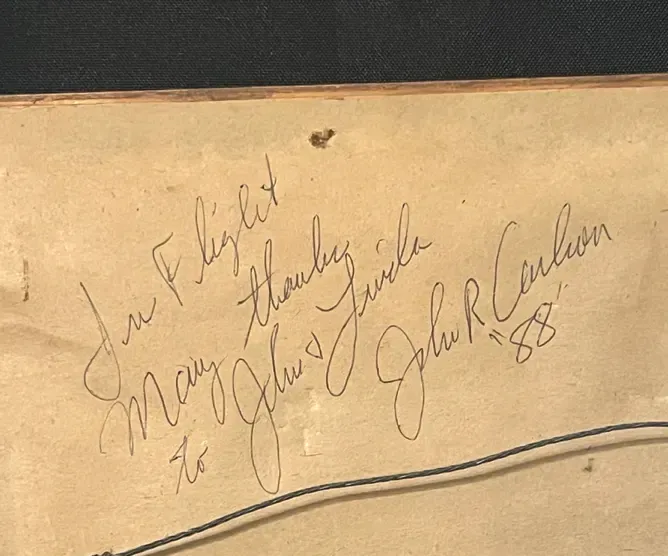 In Flight
Many thanks
to John & Linda
John R Carlson
"88"